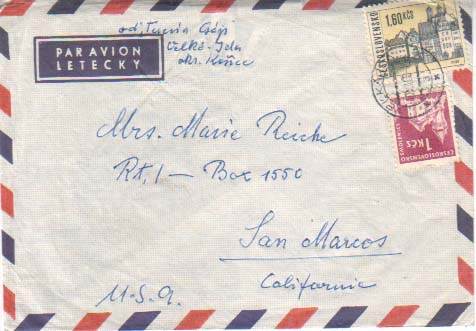 PAR AVION
LETECKY
od,
Velká-Ida
okr. Košice
1,60 KČS
ČESKOSLOVENSKO
1 Kčs
ČESKOSLOVENSKO
Mrs. Marie Reiche
Rt, 1 — Box 1550
San Marcos
California
U.S.A.